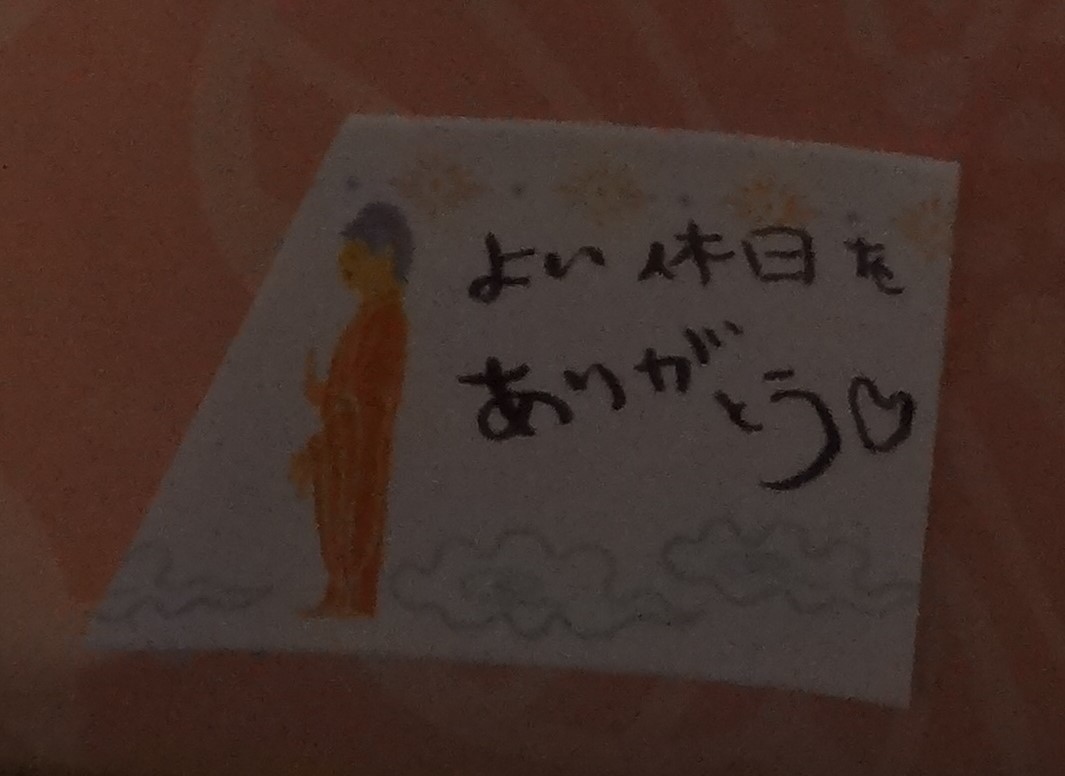 よい休日を
ありがとう♡